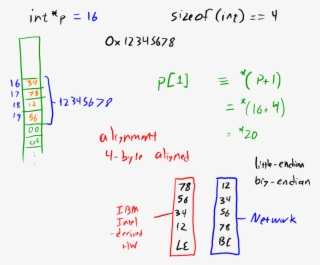 int *p = 16
sizeof(int) == 4
0x12345678
16 34
17 78
18 12
19 56
00
12345678
p[1] ≡ *(p+1)
= *(16+4)
= *20
alignment
4-byte aligned
little-endian
big-endian
IBM
Intel
-derived
HW
78
56
34
12
LE
12
34
56
78
BE
Network